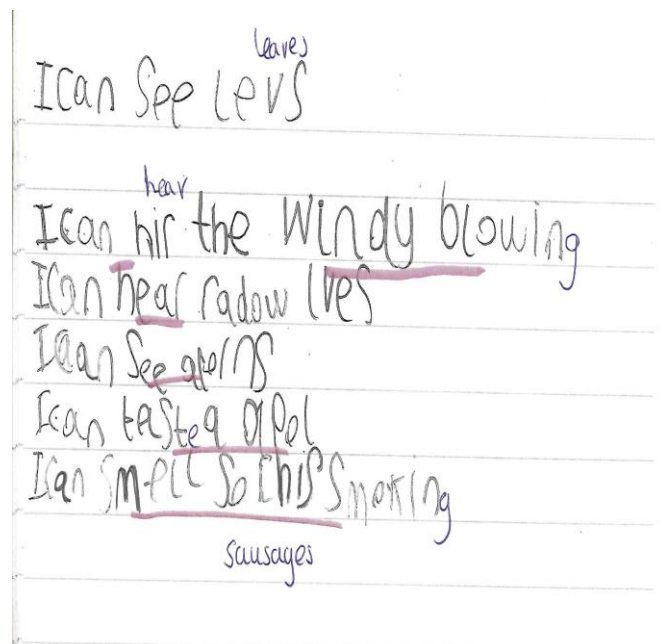 leaves
I can See levs
hear
I can hir the windy blowing
I can hear radow lves
I can See
I can taste a apel
I can Smell Smoking
sausages